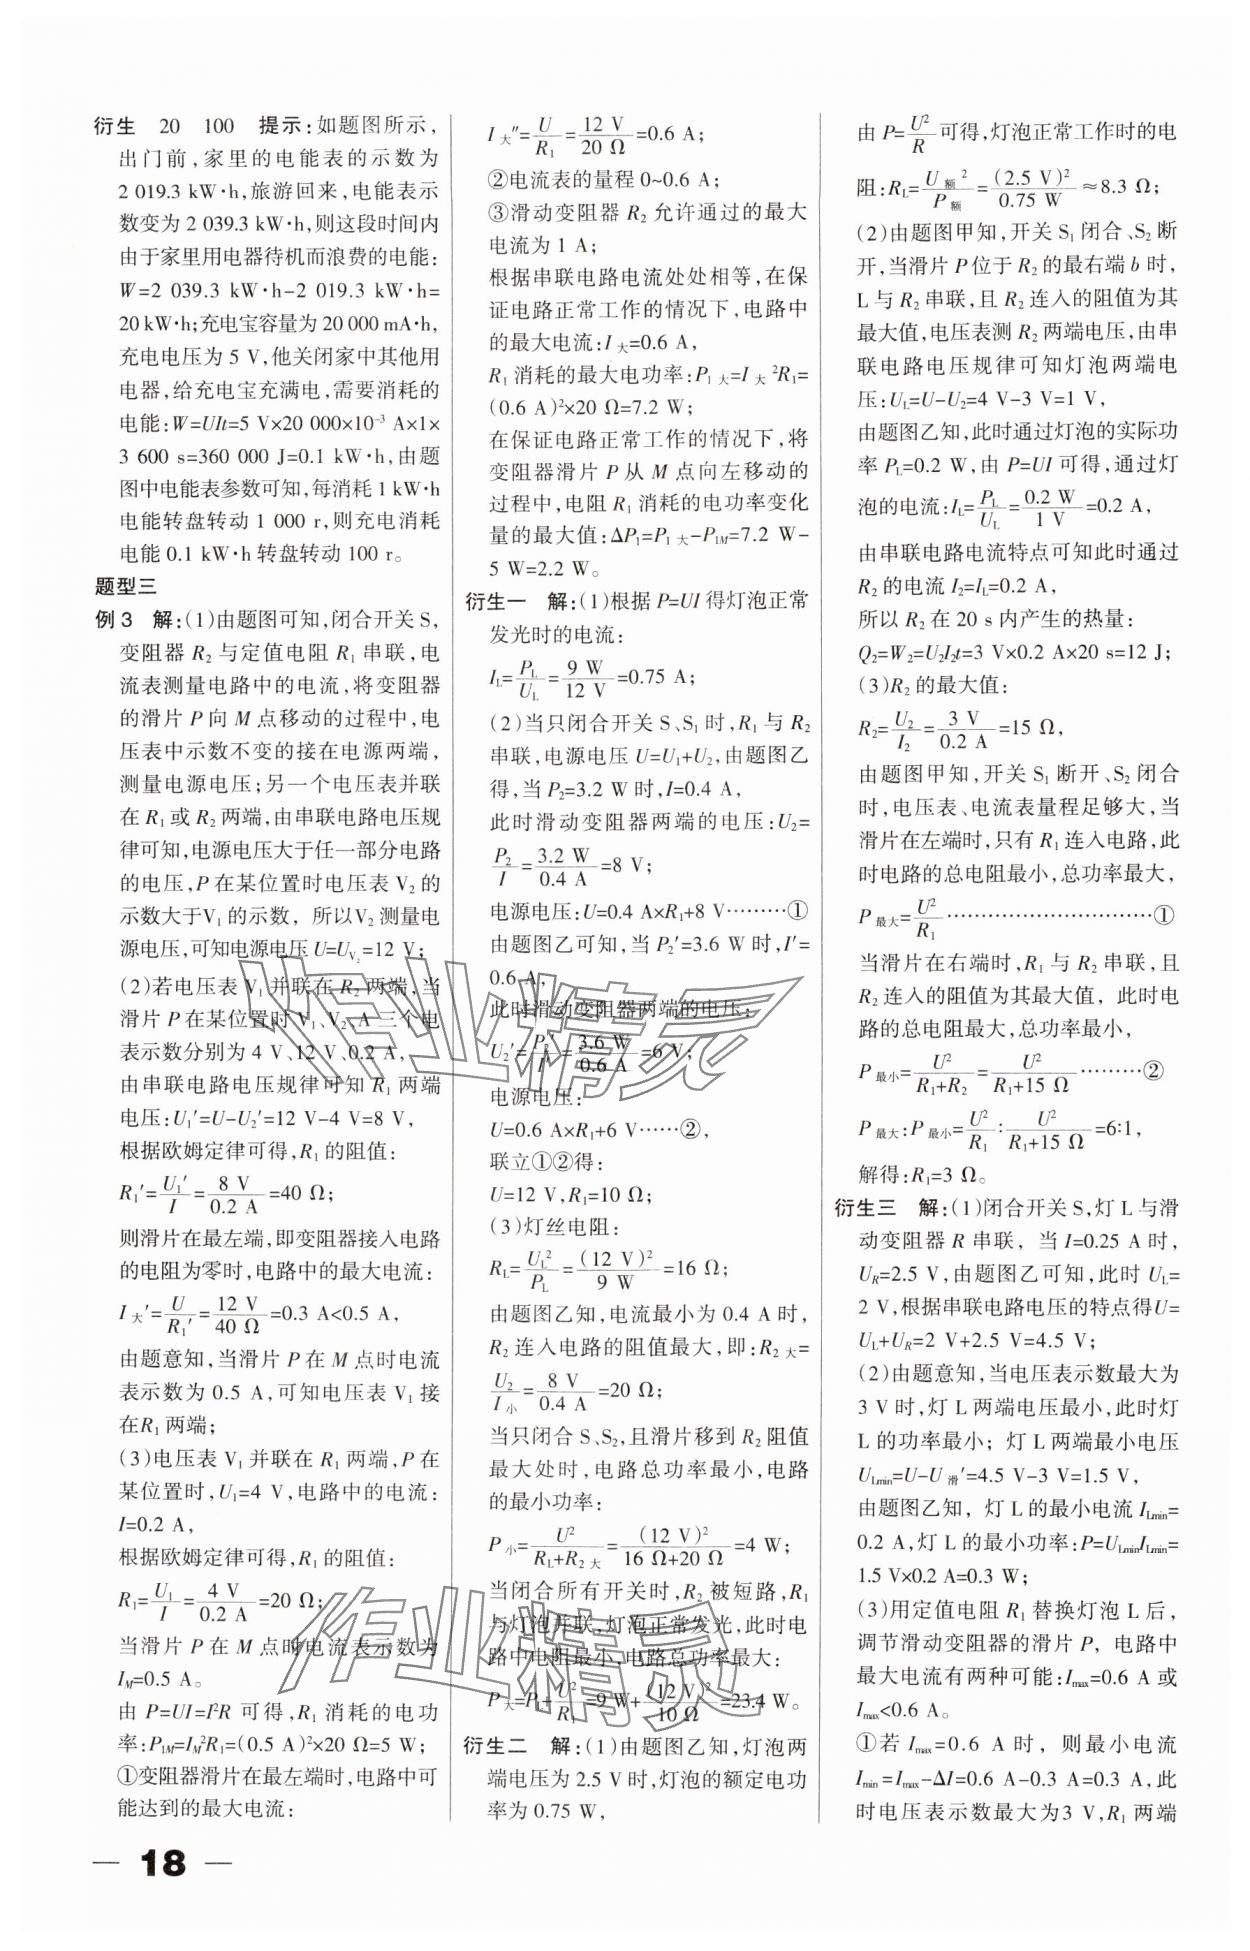 衍生　20　100　提示:如题图所示,
出门前,家里的电能表的示数为
2 019.3 kW·h,旅游回来,电能表示
数变为 2 039.3 kW·h,则这段时间内
由于家里用电器待机而浪费的电能:
W=2 039.3 kW·h-2 019.3 kW·h=
20 kW·h;充电宝容量为 20 000 mA·h,
充电电压为 5 V,他关闭家中其他用
电器,给充电宝充满电,需要消耗的
电能:W=UIt=5 V×20 000×10⁻³ A×1×
3 600 s=360 000 J=0.1 kW·h,由题
图中电能表参数可知,每消耗 1 kW·h
电能转盘转动 1 000 r,则充电消耗
电能 0.1 kW·h 转盘转动 100 r。
题型三
例 3　解:(1)由题图可知,闭合开关 S,
变阻器 R₂ 与定值电阻 R₁ 串联,电
流表测量电路中的电流,将变阻器
的滑片 P 向 M 点移动的过程中,电
压表中示数不变的接在电源两端,
测量电源电压;另一个电压表并联
在 R₁ 或 R₂ 两端,由串联电路电压规
律可知,电源电压大于任一部分电路
的电压,P 在某位置时电压表 V₂ 的
示数大于V₁ 的示数，所以V₂ 测量电
源电压,可知电源电压 U=U_V₂=12 V;
(2)若电压表 V₁ 并联在 R₂ 两端,当
滑片 P 在某位置时 V₁、V₂、A 三个电
表示数分别为 4 V、12 V、0.2 A,
由串联电路电压规律可知 R₁ 两端
电压:U₁′=U-U₂′=12 V-4 V=8 V,
根据欧姆定律可得,R₁ 的阻值:
R₁′=U₁′/I=8 V/0.2 A=40 Ω;
则滑片在最左端,即变阻器接入电路
的电阻为零时,电路中的最大电流:
I大′=U/R₁′=12 V/40 Ω=0.3 A<0.5 A,
由题意知,当滑片 P 在 M 点时电流
表示数为 0.5 A,可知电压表 V₁ 接
在R₁ 两端;
(3)电压表 V₁ 并联在 R₁ 两端,P 在
某位置时,U₁=4 V,电路中的电流:
I=0.2 A,
根据欧姆定律可得,R₁ 的阻值:
R₁=U₁/I=4 V/0.2 A=20 Ω;
当滑片 P 在 M 点时电流表示数为
I_M=0.5 A。
由 P=UI=I²R 可得,R₁ 消耗的电功
率:P₁M=I_M²R₁=(0.5 A)²×20 Ω=5 W;
①变阻器滑片在最左端时,电路中可
能达到的最大电流:
I大″=U/R₁=12 V/20 Ω=0.6 A;
②电流表的量程 0~0.6 A;
③滑动变阻器 R₂ 允许通过的最大
电流为 1 A;
根据串联电路电流处处相等,在保
证电路正常工作的情况下,电路中
的最大电流:I大=0.6 A,
R₁ 消耗的最大电功率:P₁大=I大²R₁=
(0.6 A)²×20 Ω=7.2 W;
在保证电路正常工作的情况下,将
变阻器滑片 P 从 M 点向左移动的
过程中,电阻 R₁ 消耗的电功率变化
量的最大值:ΔP₁=P₁大-P₁M=7.2 W-
5 W=2.2 W。
衍生一　解:(1)根据 P=UI 得灯泡正常
发光时的电流:
I_L=P_L/U_L=9 W/12 V=0.75 A;
(2)当只闭合开关 S、S₁ 时,R₁ 与 R₂
串联,电源电压 U=U₁+U₂,由题图乙
得,当 P₂=3.2 W 时,I=0.4 A,
此时滑动变阻器两端的电压:U₂=
P₂/I=3.2 W/0.4 A=8 V;
电源电压:U=0.4 A×R₁+8 V………①
由题图乙可知,当 P₂′=3.6 W 时,I′=
0.6 A,
此时滑动变阻器两端的电压:
U₂′=P₂′/I′=3.6 W/0.6 A=6 V;
电源电压:
U=0.6 A×R₁+6 V……②,
联立①②得:
U=12 V,R₁=10 Ω;
(3)灯丝电阻:
R_L=U_L²/P_L=(12 V)²/9 W=16 Ω;
由题图乙知,电流最小为 0.4 A 时,
R₂ 连入电路的阻值最大,即:R₂大=
U₂/I小=8 V/0.4 A=20 Ω;
当只闭合 S、S₂,且滑片移到 R₂ 阻值
最大处时,电路总功率最小,电路
的最小功率:
P小=U²/(R_L+R₂大)=(12 V)²/(16 Ω+20 Ω)=4 W;
当闭合所有开关时,R₂ 被短路,R₁
与灯泡并联,灯泡正常发光,此时电
路中电阻最小,电路总功率最大:
P大=P_L+U²/R₁=9 W+(12 V)²/10 Ω=23.4 W。
衍生二　解:(1)由题图乙知,灯泡两
端电压为 2.5 V 时,灯泡的额定电功
率为 0.75 W,
由 P=U²/R 可得,灯泡正常工作时的电
阻:R_L=U额²/P额=(2.5 V)²/0.75 W≈8.3 Ω;
(2)由题图甲知,开关 S₁ 闭合、S₂ 断
开,当滑片 P 位于 R₂ 的最右端 b 时,
L 与 R₂ 串联,且 R₂ 连入的阻值为其
最大值,电压表测 R₂ 两端电压,由串
联电路电压规律可知灯泡两端电
压:U_L=U-U₂=4 V-3 V=1 V,
由题图乙知,此时通过灯泡的实际功
率 P_L=0.2 W,由 P=UI 可得,通过灯
泡的电流:I_L=P_L/U_L=0.2 W/1 V=0.2 A,
由串联电路电流特点可知此时通过
R₂ 的电流 I₂=I_L=0.2 A,
所以 R₂ 在 20 s 内产生的热量:
Q₂=W₂=U₂I₂t=3 V×0.2 A×20 s=12 J;
(3)R₂ 的最大值:
R₂=U₂/I₂=3 V/0.2 A=15 Ω,
由题图甲知,开关 S₁ 断开、S₂ 闭合
时,电压表、电流表量程足够大,当
滑片在左端时,只有 R₁ 连入电路,此
时电路的总电阻最小,总功率最大,
P最大=U²/R₁…………………………①
当滑片在右端时,R₁ 与 R₂ 串联,且
R₂ 连入的阻值为其最大值，此时电
路的总电阻最大,总功率最小,
P最小=U²/(R₁+R₂)=U²/(R₁+15 Ω)………②
P最大:P最小=U²/R₁:U²/(R₁+15 Ω)=6:1,
解得:R₁=3 Ω。
衍生三　解:(1)闭合开关 S,灯 L 与滑
动变阻器 R 串联，当 I=0.25 A 时,
U_R=2.5 V,由题图乙可知,此时 U_L=
2 V,根据串联电路电压的特点得U=
U_L+U_R=2 V+2.5 V=4.5 V;
(2)由题意知,当电压表示数最大为
3 V 时,灯 L 两端电压最小,此时灯
L 的功率最小；灯 L 两端最小电压
U_Lmin=U-U滑′=4.5 V-3 V=1.5 V,
由题图乙知，灯 L 的最小电流 I_Lmin=
0.2 A,灯 L 的最小功率:P=U_LminI_Lmin=
1.5 V×0.2 A=0.3 W;
(3)用定值电阻 R₁ 替换灯泡 L 后,
调节滑动变阻器的滑片 P，电路中
最大电流有两种可能:I_max=0.6 A 或
I_max<0.6 A。
①若 I_max=0.6 A 时，则最小电流
I_min=I_max-ΔI=0.6 A-0.3 A=0.3 A,此
时电压表示数最大为3 V,R₁ 两端
— 18 —
作业精灵
作业精灵